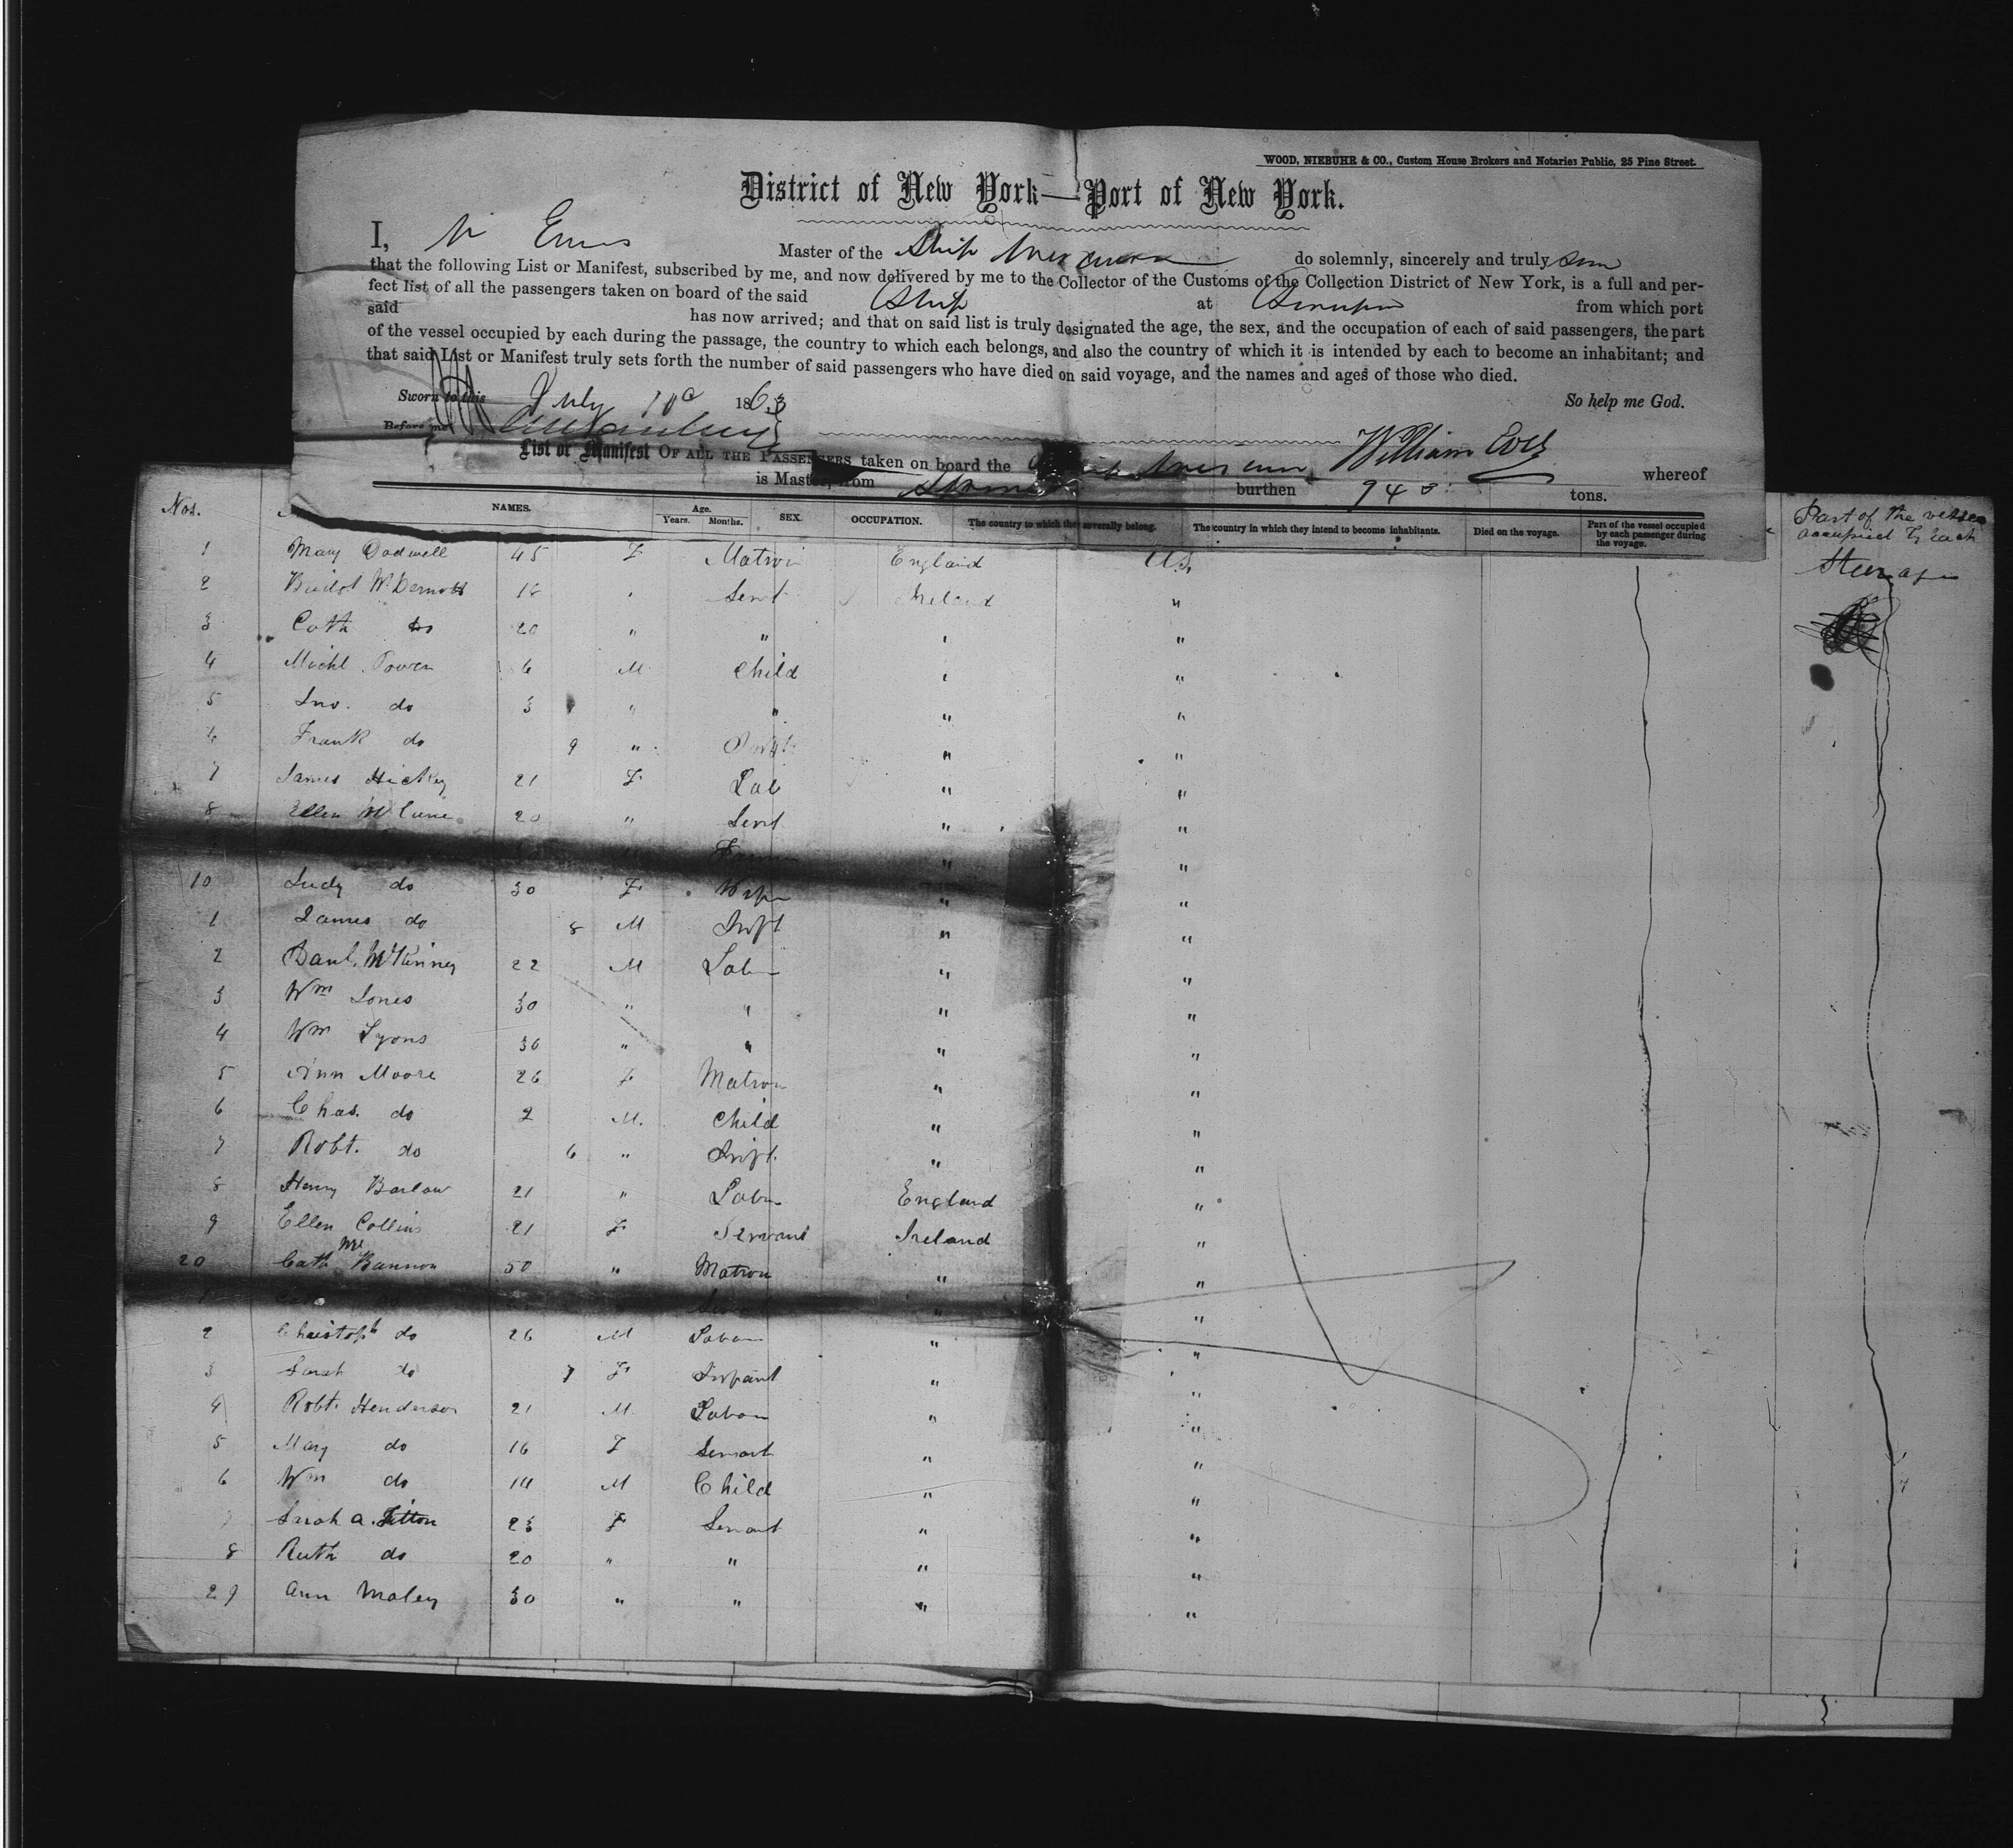 WOOD, NIEBUHR & CO., Custom House Brokers and Notaries Public, 25 Pine Street.
District of New York—Port of New York.
I, Master of the Ship do solemnly, sincerely and truly
that the following List or Manifest, subscribed by me, and now delivered by me to the Collector of the Customs of the Collection District of New York, is a full and per-
fect list of all the passengers taken on board of the said Ship at from which port
said has now arrived; and that on said list is truly designated the age, the sex, and the occupation of each of said passengers, the part
of the vessel occupied by each during the passage, the country to which each belongs, and also the country of which it is intended by each to become an inhabitant; and
that said List or Manifest truly sets forth the number of said passengers who have died on said voyage, and the names and ages of those who died.
Sworn to this July 1863 So help me God.
Before me
List or Manifest OF ALL THE PASSENGERS taken on board the William whereof
is Master, from burthen tons.
NAMES. Age. Years. Months. SEX. OCCUPATION. The country to which they severally belong. The country in which they intend to become inhabitants. Died on the voyage. Part of the vessel occupied by each passenger during the voyage.
Nos. Part of the vessel occupied by each
1 Mary Dodwell 45 F Matron England U.S. Steerage
2 McDermott 18 " Servt Ireland "
3 Cath do 20 " " " "
4 Michl Power 6 M Child " "
5 Jno. do 3 " " " "
6 Frank do 9 " " "
7 James Hickey 21 F Lab " "
8 Ellen 20 " Servt " "
Farmer " "
10 Judy do 30 F Wife " "
1 James do 8 M Inft " "
2 Danl. McKinney 22 M Labr " "
3 Wm Jones 30 " " " "
4 Wm Lyons 36 " " " "
5 Ann Moore 26 F Matron " "
6 Chas. do 2 M. Child " "
7 Robt. do 6 " Inft. " "
8 Henry Barlow 21 " Labr England "
9 Ellen Collins 21 F Servant Ireland "
20 Cath Mc Bannon 50 " Matron " "
1 " "
2 Christoph do 26 M Labour " "
3 Sarah do 7 F Infant " "
4 Robt. Henderson 21 M Labour " "
5 Mary do 16 F Servant " "
6 Wm do 14 M Child " "
7 Sarah A. Fitton 23 F Servant " "
8 Ruth do 20 " " " "
29 Ann Maley 30 " " " "